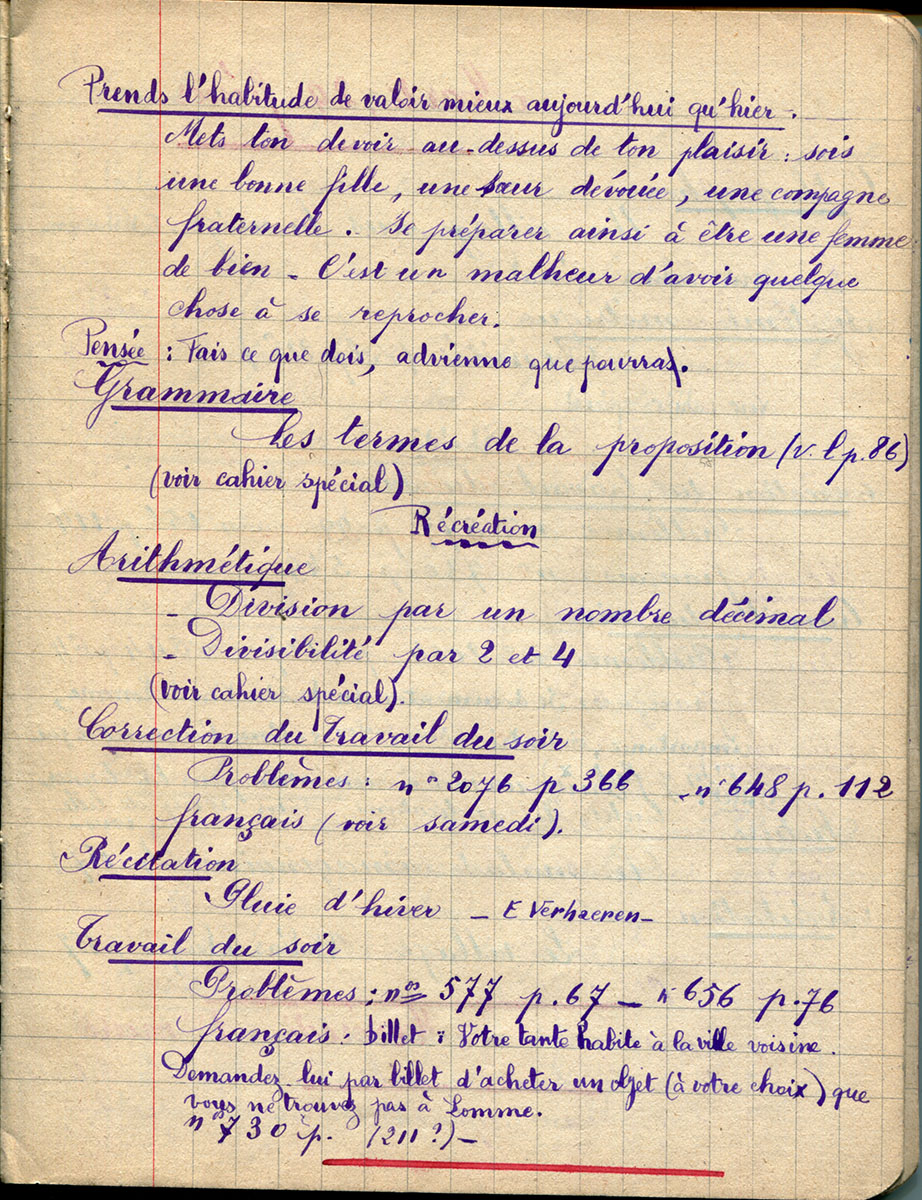 Prends l'habitude de valoir mieux aujourd'hui qu'hier.
Mets ton devoir au-dessus de ton plaisir : sois
une bonne fille, une sœur dévouée, une compagne
fraternelle. Se préparer ainsi à être une femme
de bien - C'est un malheur d'avoir quelque
chose à se reprocher.
Pensée : Fais ce que dois, advienne que pourra.
Grammaire
Les termes de la proposition (v. l p. 86)
(voir cahier spécial)
Récréation
Arithmétique
- Division par un nombre décimal
- Divisibilité par 2 et 4
(voir cahier spécial).
Correction du Travail du soir
Problèmes : n° 2076 p 366 - n° 648 p. 112
français (voir samedi).
Récitation
Pluie d'hiver - E Verhaeren -
Travail du soir
Problèmes : nos 577 p. 67 - n° 656 p. 76
français. billet : Votre tante habite à la ville voisine.
Demandez-lui par billet d'acheter un objet (à votre choix) que
vous ne trouvez pas à Lomme.
n° 730 p. (211 ?) -